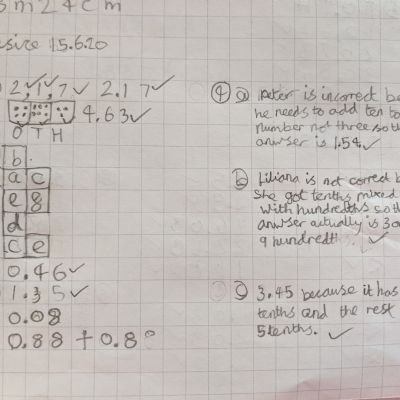 3m24cm
15.6.20
2, 1, 7 2.17
4.63
O T H
b
a c
e g
d
c e
0.46
1.35
0.08
0.88 + 0.8
4 a Peter is incorrect
he needs to add ten to
number not three so th
anwser is 1.54.
b Liliana is not correct b
She got tenths mixed
with hundredths so th
anwser actually is 3 o
9 hundredth
c 3.45 because it has
tenths and the rest
5 tenths.